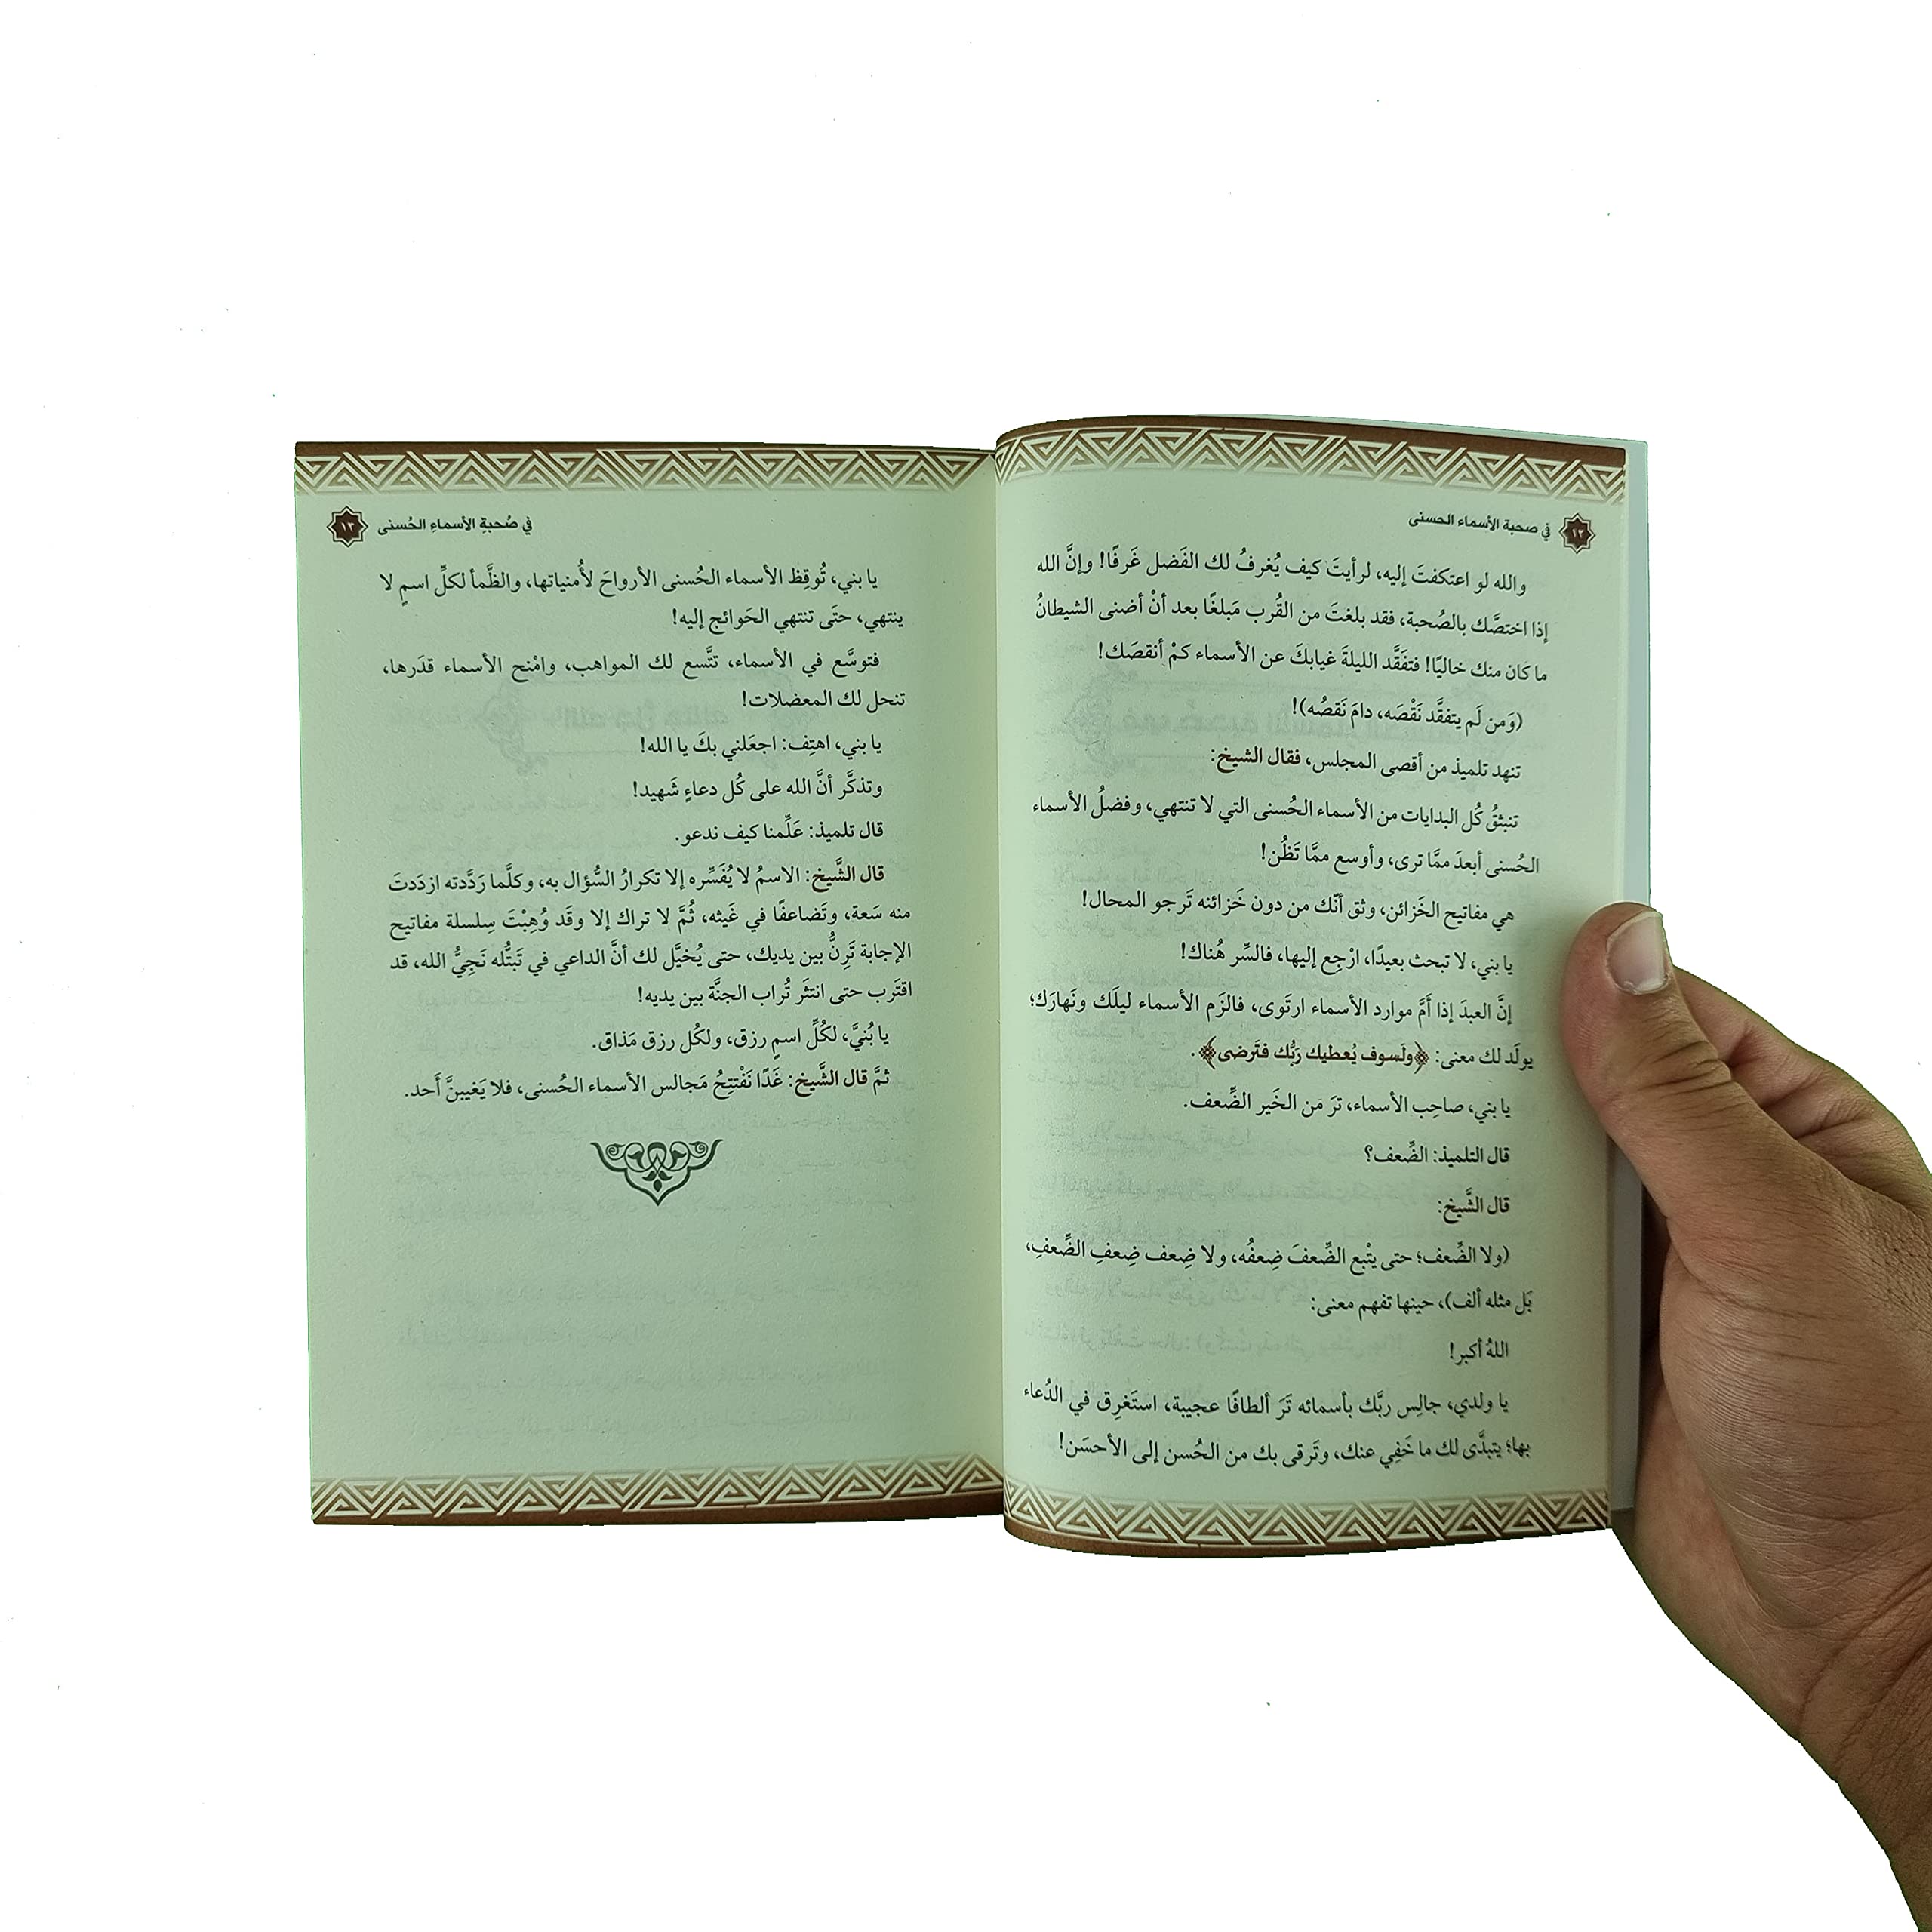 في صحبة الأسماء الحسنى ١٢
والله لو اعتكفتَ إليه، لرأيتَ كيف يُغرفُ لك الفَضل غَرفًا! وإنَّ الله
إذا اختصَّك بالصُحبة، فقد بلغتَ من القُرب مَبلغًا بعد أنْ أضنى الشيطانُ
ما كان منك خاليًا! فتفَقَّد الليلةَ غيابكَ عن الأسماء كمْ أنقصَك!
(وَمن لَم يتفقَّد نَقْصَه، دامَ نَقصُه)!
تنهد تلميذ من أقصى المجلس، فقال الشيخ:
تنبثقُ كُل البدايات من الأسماء الحُسنى التي لا تنتهي، وفضلُ الأسماء
الحُسنى أبعدَ ممَّا ترى، وأوسع ممَّا تَظُن!
هي مفاتيح الخَزائن، وثق أنّك من دون خَزائنه تَرجو المحال!
يا بني، لا تبحث بعيدًا، ارْجِع إليها، فالسِّر هُناك!
إنَّ العبدَ إذا أَمَّ موارد الأسماء ارتَوى، فالزَم الأسماء ليلَك ونَهارَك؛
يولَد لك معنى: ﴿ولَسوف يُعطيك رَبُّك فتَرضى﴾.
يا بني، صاحِب الأسماء، ترَ من الخَير الضِّعف.
قال التلميذ: الضِّعف؟
قال الشَّيخ:
(ولا الضِّعف؛ حتى يتْبع الضِّعفَ ضِعفُه، ولا ضِعف ضِعفِ الضِّعفِ،
بَل مثله ألف)، حينها تفهم معنى:
اللهُ أكبر!
يا ولدي، جالِس ربَّك بأسمائه تَرَ ألطافًا عجيبة، استَغرِق في الدُعاء
بها؛ يتبدَّى لك ما خَفِي عنك، وتَرقى بك من الحُسن إلى الأحسَن!
في صُحبةِ الأسماءِ الحُسنى ١٣
يا بني، تُوقِظ الأسماء الحُسنى الأرواحَ لأُمنياتها، والظَّمأ لكلِّ اسمٍ لا
ينتهي، حتَى تنتهي الحَوائج إليه!
فتوسَّع في الأسماء، تتَّسع لك المواهب، وامْنح الأسماء قدَرها،
تنحل لك المعضلات!
يا بني، اهتِف: اجعَلني بكَ يا الله!
وتذكَّر أنَّ الله على كُل دعاءٍ شَهيد!
قال تلميذ: عَلِّمنا كيف ندعو.
قال الشَّيخ: الاسمُ لا يُفَسِّره إلا تكرارُ السُّؤال به، وكلَّما رَدَّدته ازدَدتَ
منه سَعة، وتَضاعفًا في غَيثه، ثُمَّ لا تراك إلا وقَد وُهِبْتَ سِلسلة مفاتيح
الإجابة تَرِنُّ بين يديك، حتى يُخيَّل لك أنَّ الداعي في تَبَتُّله نَجِيُّ الله، قد
اقتَرب حتى انتثَر تُراب الجنَّة بين يديه!
يا بُنيَّ، لكُلِّ اسمٍ رزق، ولكُل رزق مَذاق.
ثمَّ قال الشَّيخ: غَدًا نَفْتتِحُ مَجالس الأسماء الحُسنى، فلا يَغيبنَّ أَحد.